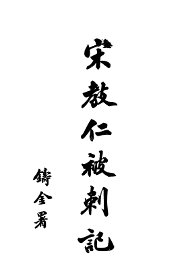 宋教仁被刺記
鑄金署